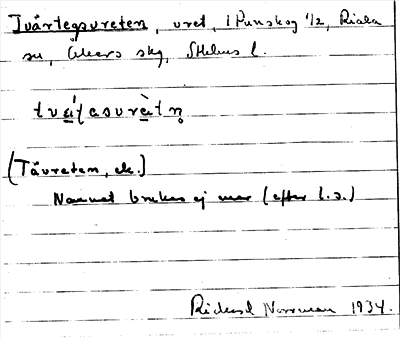 Tvärtegsvreten, vret, i Punskog 1/2, Riala
sn, Åkers skg, Sthlms l.
(Tåvreten, ek.)
Namnet brukas ej mer (efter l. s.)
Rickard Norrman 1934.